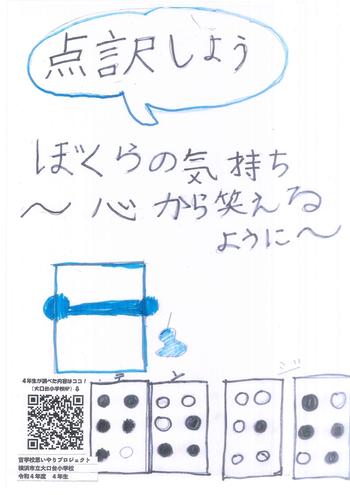 点訳しよう
ぼくらの気持ち
～心から笑える
ように～
テ と
4年生が調べた内容はココ!
(大口台小学校HP)
盲学校思いやりプロジェクト
横浜市立大口台小学校
令和4年度 4年生